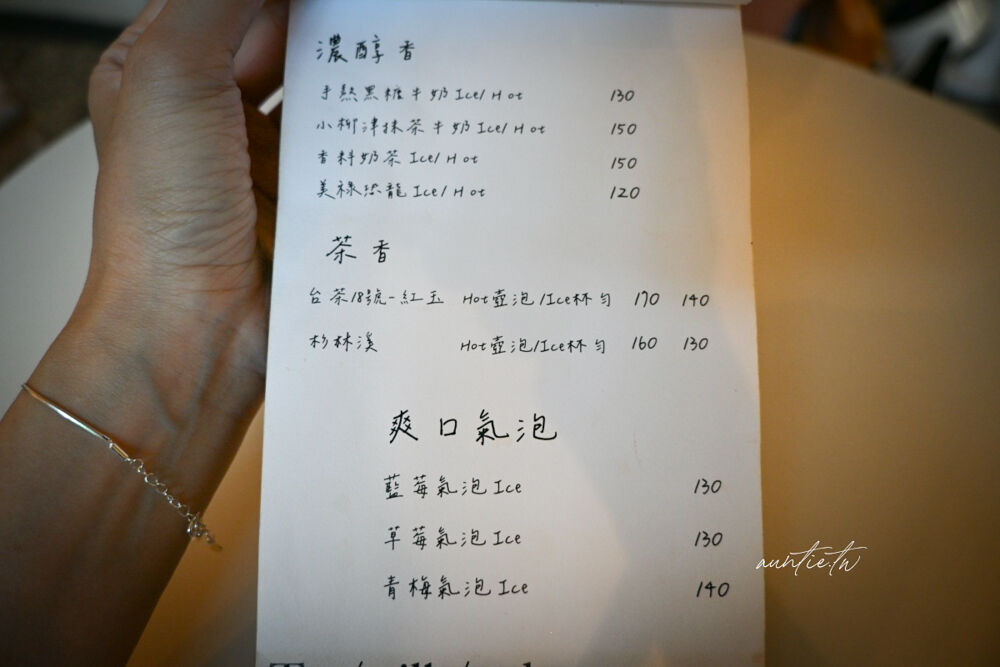 濃醇香
手熬黑糖牛奶 Ice/Hot 130
小柳津抹茶牛奶 Ice/Hot 150
香料奶茶 Ice/Hot 150
美祿恐龍 Ice/Hot 120
茶香
台茶18號-紅玉 Hot壺泡/Ice杯勻 170 140
杉林溪 Hot壺泡/Ice杯勻 160 130
爽口氣泡
藍莓氣泡 Ice 130
草莓氣泡 Ice 130
青梅氣泡 Ice 140
auntie.tw